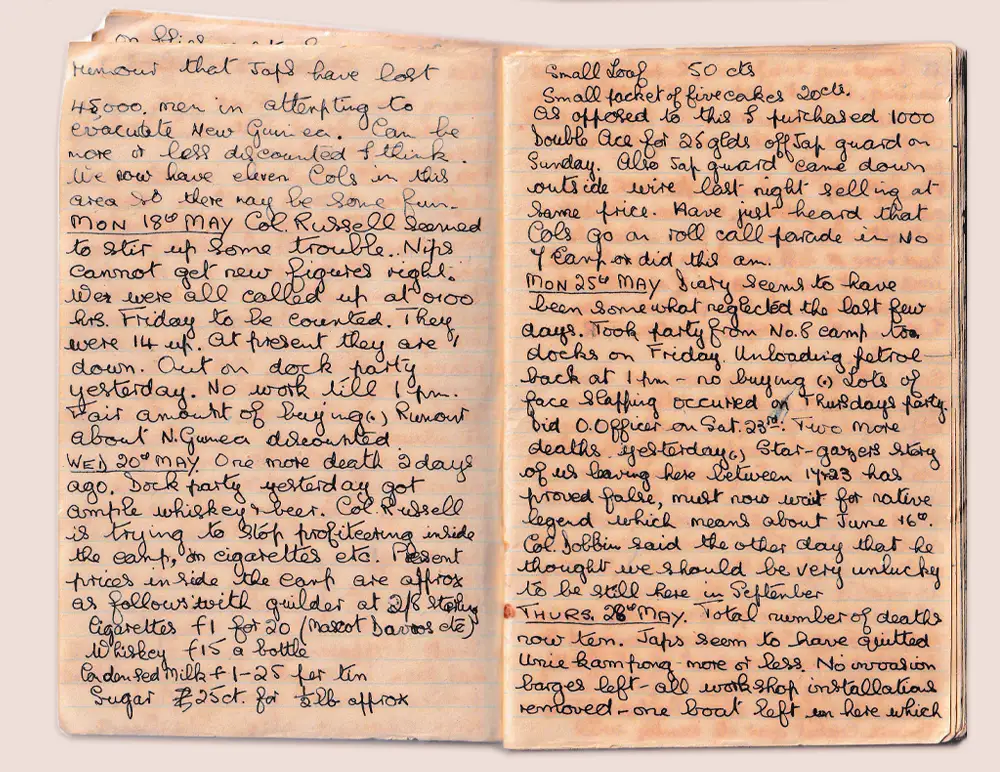 Rumour that Japs have lost
45,000. men in attempting to
evacuate New Guinea. Can be
more or less discounted I think.
We now have eleven Cols in this
area so there may be some fun.
MON 18th MAY Col. Russell seemed
to stir up some trouble. Nips
cannot get new figures right.
We were all called up at 0100
hrs. Friday to be counted. They
were 14 up. At present they are 1
down. Out on dock party
yesterday. No work till 1 pm.
Fair amount of buying(.) Rumour
about N. Guinea discounted
WED 20th MAY. One more death 2 days
ago. Dock party yesterday got
ample whiskey & beer. Col. Russell
is trying to stop profiteering inside
the camp, on cigarettes etc. Present
prices inside the camp are approx
as follows with guilder at 2/8 sterling
Cigarettes f1 for 20 (Mascot Davros etc)
Whiskey f15 a bottle
Condensed Milk f1-25 per tin
Sugar 25ct. for ½lb approx
Small Loaf 50 cts
Small packet of five cakes 20cts.
As opposed to this I purchased 1000
Double Ace for 25 glds off Jap guard on
Sunday. Also Jap guard came down
outside wire last night selling at
same price. Have just heard that
Cols go on roll call parade in No
7 Camp or did this am.
MON 25th MAY Diary seems to have
been somewhat neglected the last few
days. Took party from No.8 camp to
docks on Friday. Unloading petrol
back at 1 pm - no buying (.) Lots of
face slapping occurred on Thursdays party.
Did O.Officer on Sat. 23rd. Two more
deaths yesterday(.) Star-gazers story
of us leaving here between 17&23 has
proved false, must now wait for native
legend which means about June 16th.
Col. Dobbin said the other day that he
thought we should be very unlucky
to be still here in September
THURS. 28th MAY. Total number of deaths
now ten. Japs seem to have quitted
Unie kampong more or less. No invasion
barges left - all workshop installations
removed - one boat left in here which